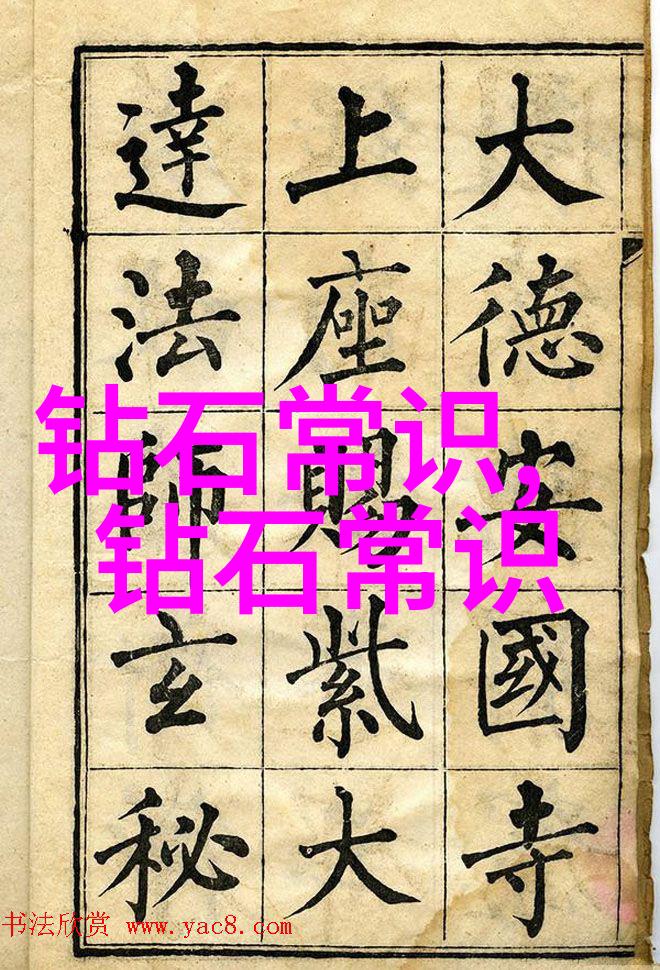 大德安國寺
上座賜紫大
達法師玄秘
钻石常识,
钻石常识
书法欣赏 www.yac8.com